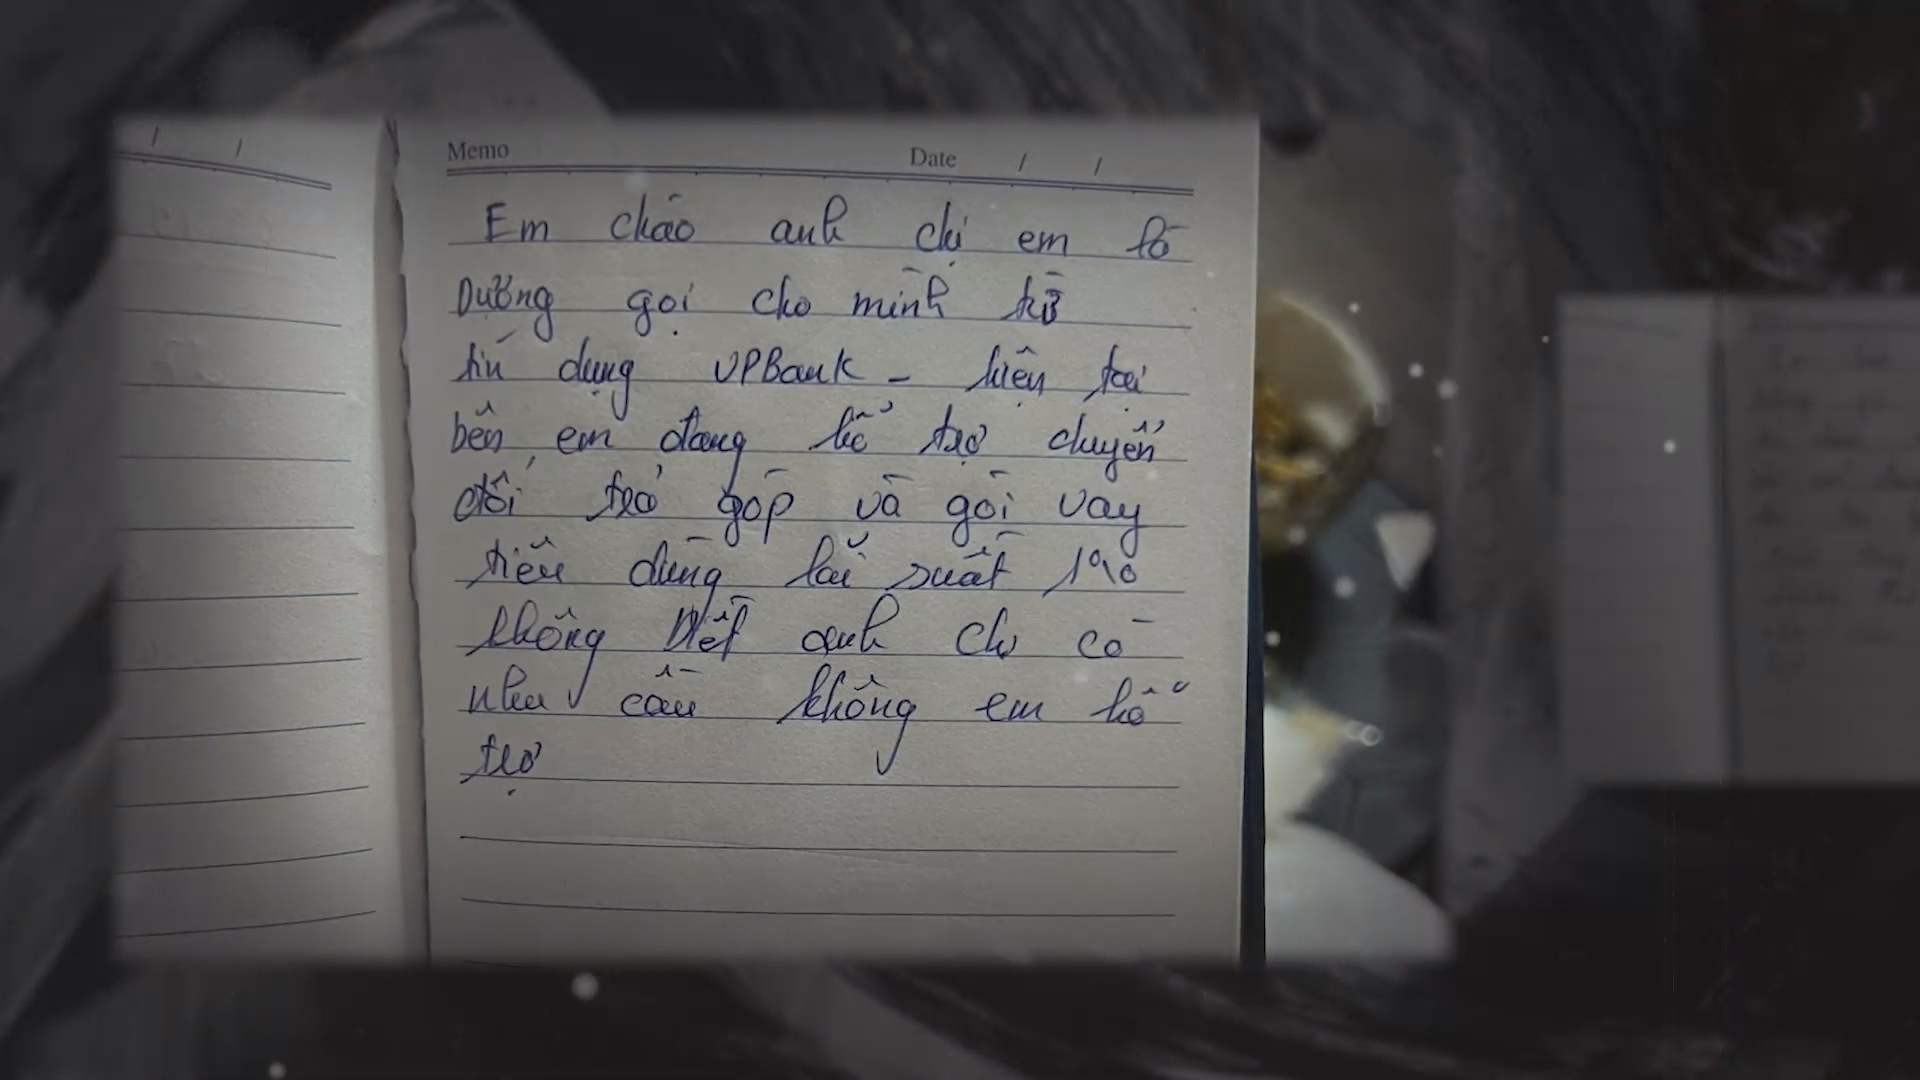 Memo Date / /
Em chào anh chị em là
Dương gọi cho mình từ
tín dụng VPBank - hiện tại
bên em đang hỗ trợ chuyển
đổi trả góp và gói vay
tiêu dùng lãi suất 1%
không biết anh chị có
nhu cầu không em hỗ
trợ